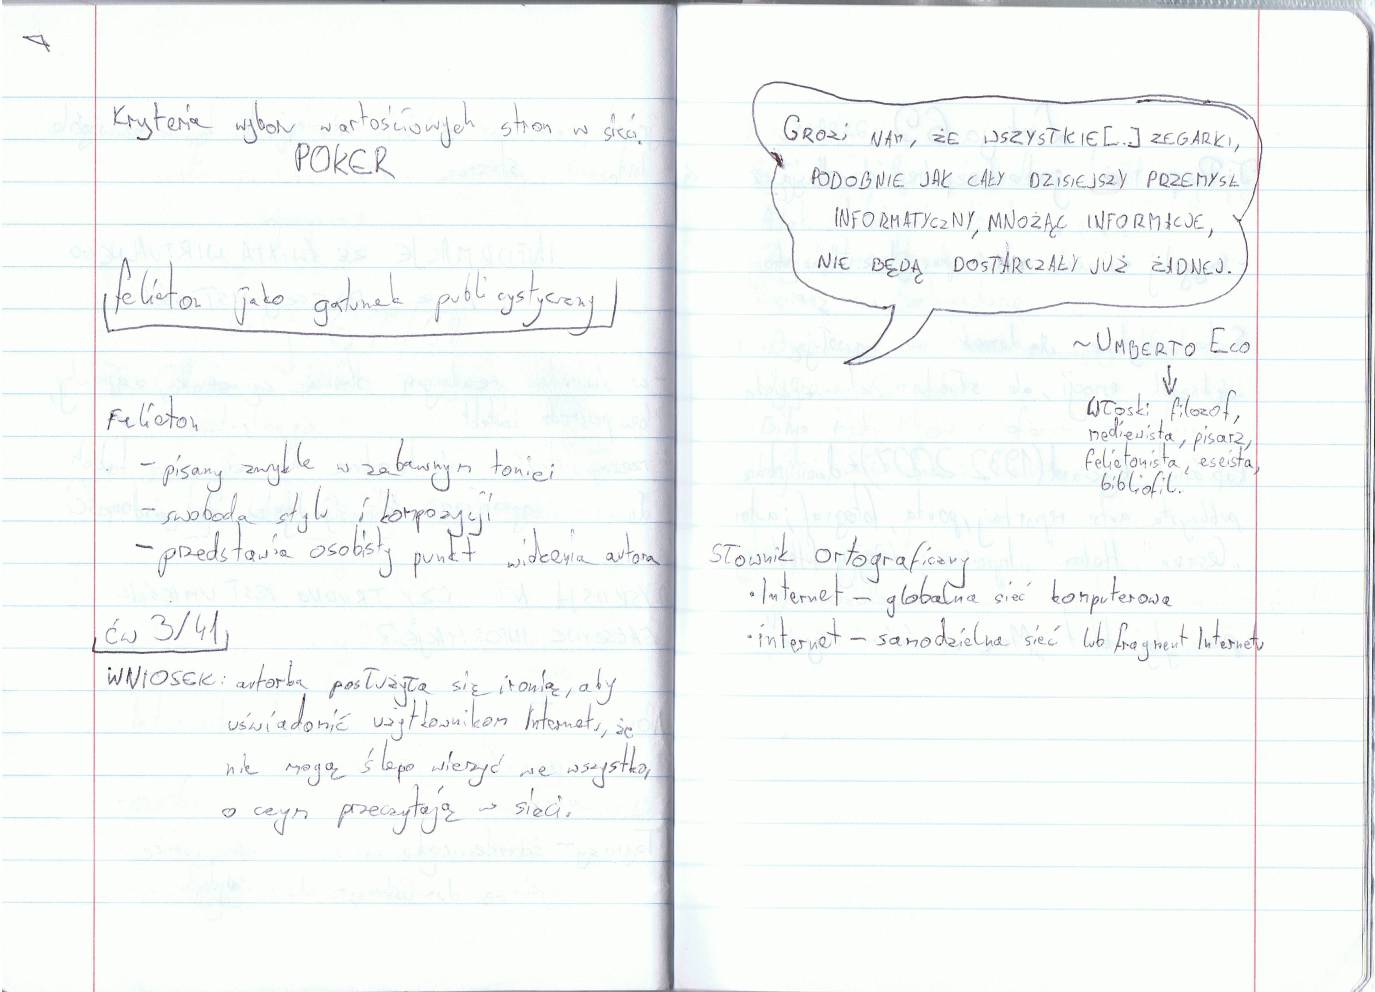 Kryteria wyboru wartościowych stron w sieci.
POKER
felieton jako gatunek publicystyczny
Felieton
- pisany zwykle w zabawnym tonie
- swoboda stylu i kompozycji
- przedstawia osobisty punkt widzenia autora
ćw 3/41
WNIOSEK: autorka posłużyła się ironią, aby
uświadomić użytkownikom Internetu, że
nie mogą ślepo wierzyć we wszystko,
o czym przeczytają w sieci.
GROZI NAM, ŻE WSZYSTKIE [...] ZEGARKI,
PODOBNIE JAK CAŁY DZISIEJSZY PRZEMYSŁ
INFORMATYCZNY, MNOŻĄC INFORMACJE,
NIE BĘDĄ DOSTARCZAŁY JUŻ ŻADNEJ.
~ UMBERTO ECO
Włoski filozof,
mediewista, pisarz,
felietonista, eseista,
bibliofil.
Słownik ortograficzny
• Internet - globalna sieć komputerowa
• internet - samodzielna sieć lub fragment Internetu